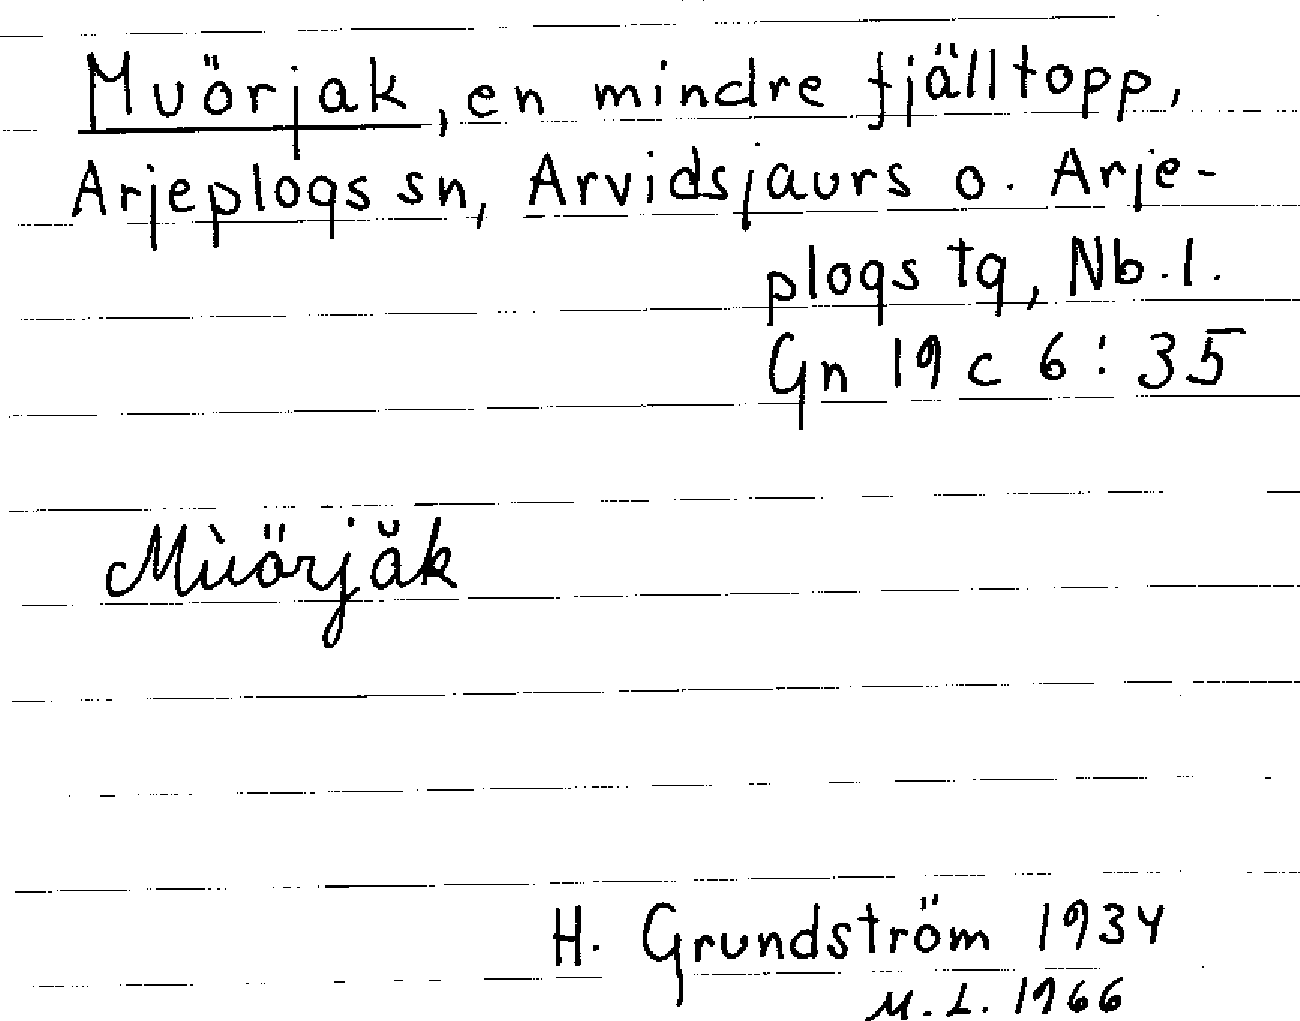 Muörjak, en mindre fjälltopp,
Arjeplogs sn, Arvidsjaurs o. Arje-
plogs tg, Nb.l.
Gn 19 c 6:35
Mùörjăk
H. Grundström 1934
M.L. 1966